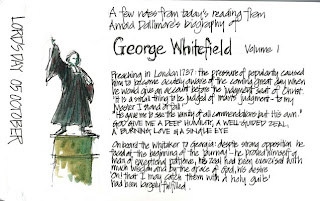 LORD'S DAY 05 OCTOBER
A few notes from today's reading from
Arnold Dallimore's biography of
George Whitefield Volume 1
Preaching in London 1737: the pressure of popularity caused
him to become acutely aware of the coming great day when
he would give an account before the judgment seat of Christ.
"It is a small thing to be judged of man's judgment - to my
Master I stand or fall."
"He gave me to see the vanity of all commendations but His own."
GOD GIVE ME A DEEP HUMILITY, A WELL GUIDED ZEAL,
A BURNING LOVE & A SINGLE EYE
On board the Whitaker to Georgia: despite strong opposition he
faced at the beginning of the journey - he proved himself a
man of exceptional patience, his zeal had been exercised with
much wisdom and by the grace of God, his desire
'Oh! that I may catch them with a holy guile!'
had been largely fulfilled.